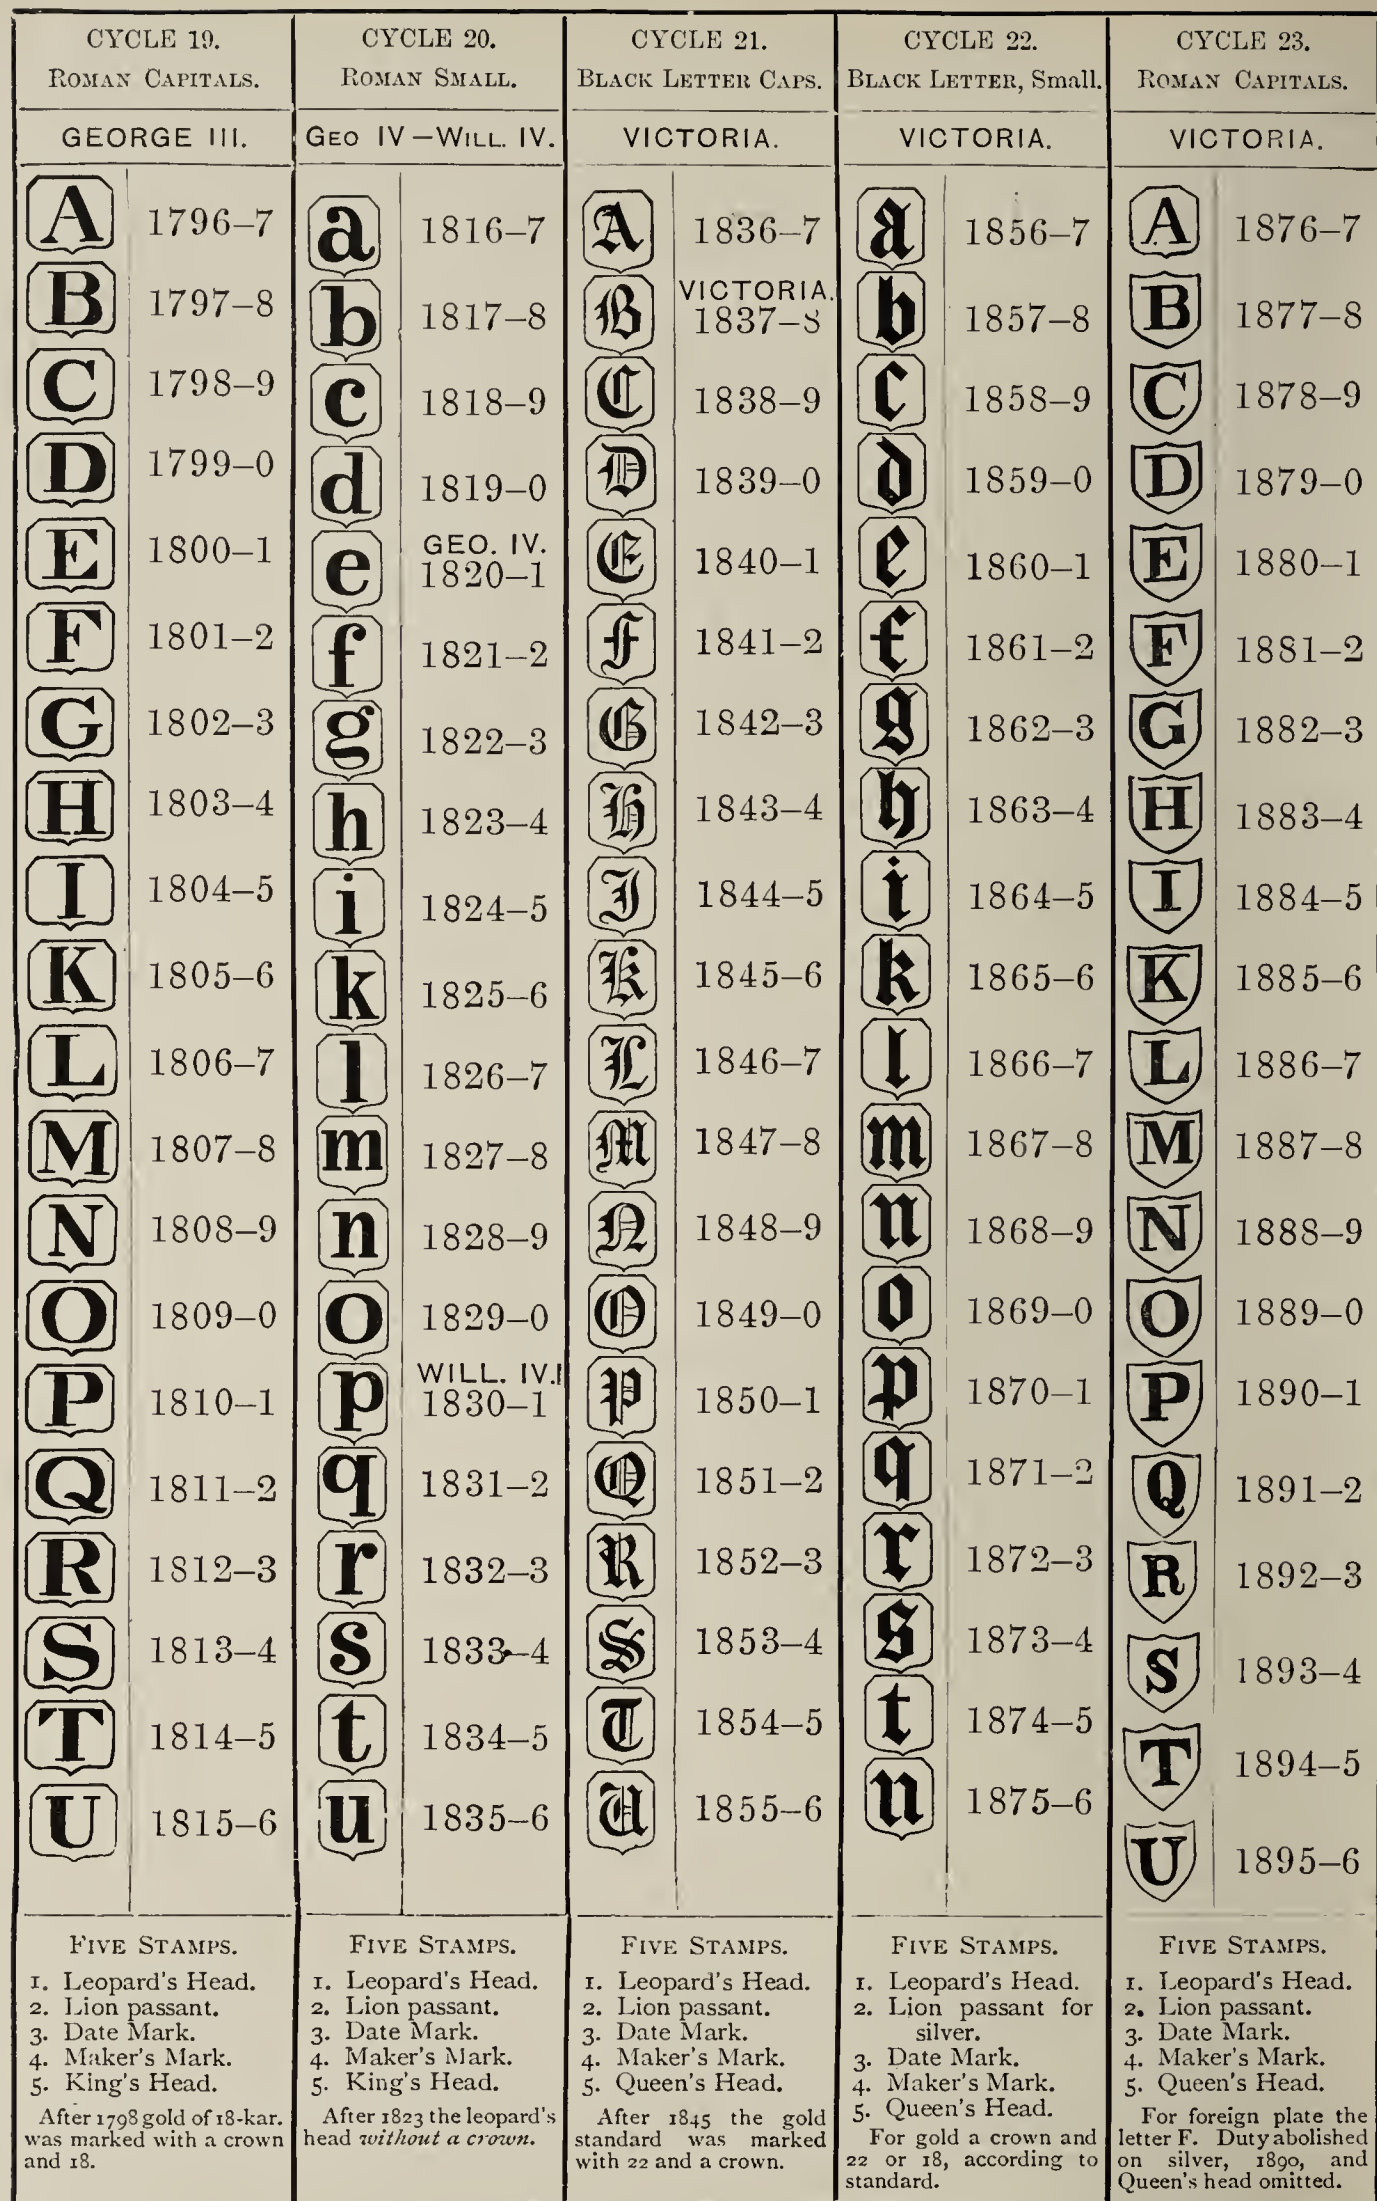 CYCLE 19.
ROMAN CAPITALS.
GEORGE III.
A 1796–7
B 1797–8
C 1798–9
D 1799–0
E 1800–1
F 1801–2
G 1802–3
H 1803–4
I 1804–5
K 1805–6
L 1806–7
M 1807–8
N 1808–9
O 1809–0
P 1810–1
Q 1811–2
R 1812–3
S 1813–4
T 1814–5
U 1815–6
FIVE STAMPS.
1. Leopard's Head.
2. Lion passant.
3. Date Mark.
4. Maker's Mark.
5. King's Head.
After 1798 gold of 18-kar.
was marked with a crown
and 18.
CYCLE 20.
ROMAN SMALL.
GEO IV–WILL. IV.
a 1816–7
b 1817–8
c 1818–9
d 1819–0
GEO. IV.
e 1820–1
f 1821–2
g 1822–3
h 1823–4
i 1824–5
k 1825–6
l 1826–7
m 1827–8
n 1828–9
o 1829–0
WILL. IV.
p 1830–1
q 1831–2
r 1832–3
s 1833–4
t 1834–5
u 1835–6
FIVE STAMPS.
1. Leopard's Head.
2. Lion passant.
3. Date Mark.
4. Maker's Mark.
5. King's Head.
After 1823 the leopard's
head without a crown.
CYCLE 21.
BLACK LETTER CAPS.
VICTORIA.
A 1836–7
VICTORIA.
B 1837–8
C 1838–9
D 1839–0
E 1840–1
F 1841–2
G 1842–3
H 1843–4
I 1844–5
K 1845–6
L 1846–7
M 1847–8
N 1848–9
O 1849–0
P 1850–1
Q 1851–2
R 1852–3
S 1853–4
T 1854–5
U 1855–6
FIVE STAMPS.
1. Leopard's Head.
2. Lion passant.
3. Date Mark.
4. Maker's Mark.
5. Queen's Head.
After 1845 the gold
standard was marked
with 22 and a crown.
CYCLE 22.
BLACK LETTER, Small.
VICTORIA.
a 1856–7
b 1857–8
c 1858–9
d 1859–0
e 1860–1
f 1861–2
g 1862–3
h 1863–4
i 1864–5
k 1865–6
l 1866–7
m 1867–8
n 1868–9
o 1869–0
p 1870–1
q 1871–2
r 1872–3
s 1873–4
t 1874–5
u 1875–6
FIVE STAMPS.
1. Leopard's Head.
2. Lion passant for
silver.
3. Date Mark.
4. Maker's Mark.
5. Queen's Head.
For gold a crown and
22 or 18, according to
standard.
CYCLE 23.
ROMAN CAPITALS.
VICTORIA.
A 1876–7
B 1877–8
C 1878–9
D 1879–0
E 1880–1
F 1881–2
G 1882–3
H 1883–4
I 1884–5
K 1885–6
L 1886–7
M 1887–8
N 1888–9
O 1889–0
P 1890–1
Q 1891–2
R 1892–3
S 1893–4
T 1894–5
U 1895–6
FIVE STAMPS.
1. Leopard's Head.
2. Lion passant.
3. Date Mark.
4. Maker's Mark.
5. Queen's Head.
For foreign plate the
letter F. Duty abolished
on silver, 1890, and
Queen's head omitted.